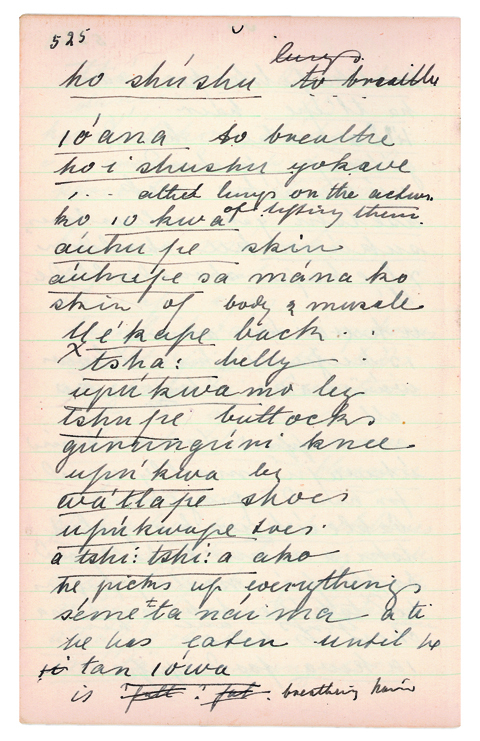 525
lungs.
ko shúshu to breathe
ió'ana to breathe
ko i' shushu yokave
lungs on the action
ko io kwa of lifting them.
áuhupe skin
áuhupe sa mána ko
skin of body & muscle
Yékape back
× tsha: belly
upúkwa mo leg
tshupe buttocks
gúnungúni knee
upúkwa leg
wátlape shoes
upúkwape toes.
a tshi: tshi: a ako
he picks up everything
séme ta nái ma a ti
he has eaten until he
tan iówa
is full : fat. breathing hard